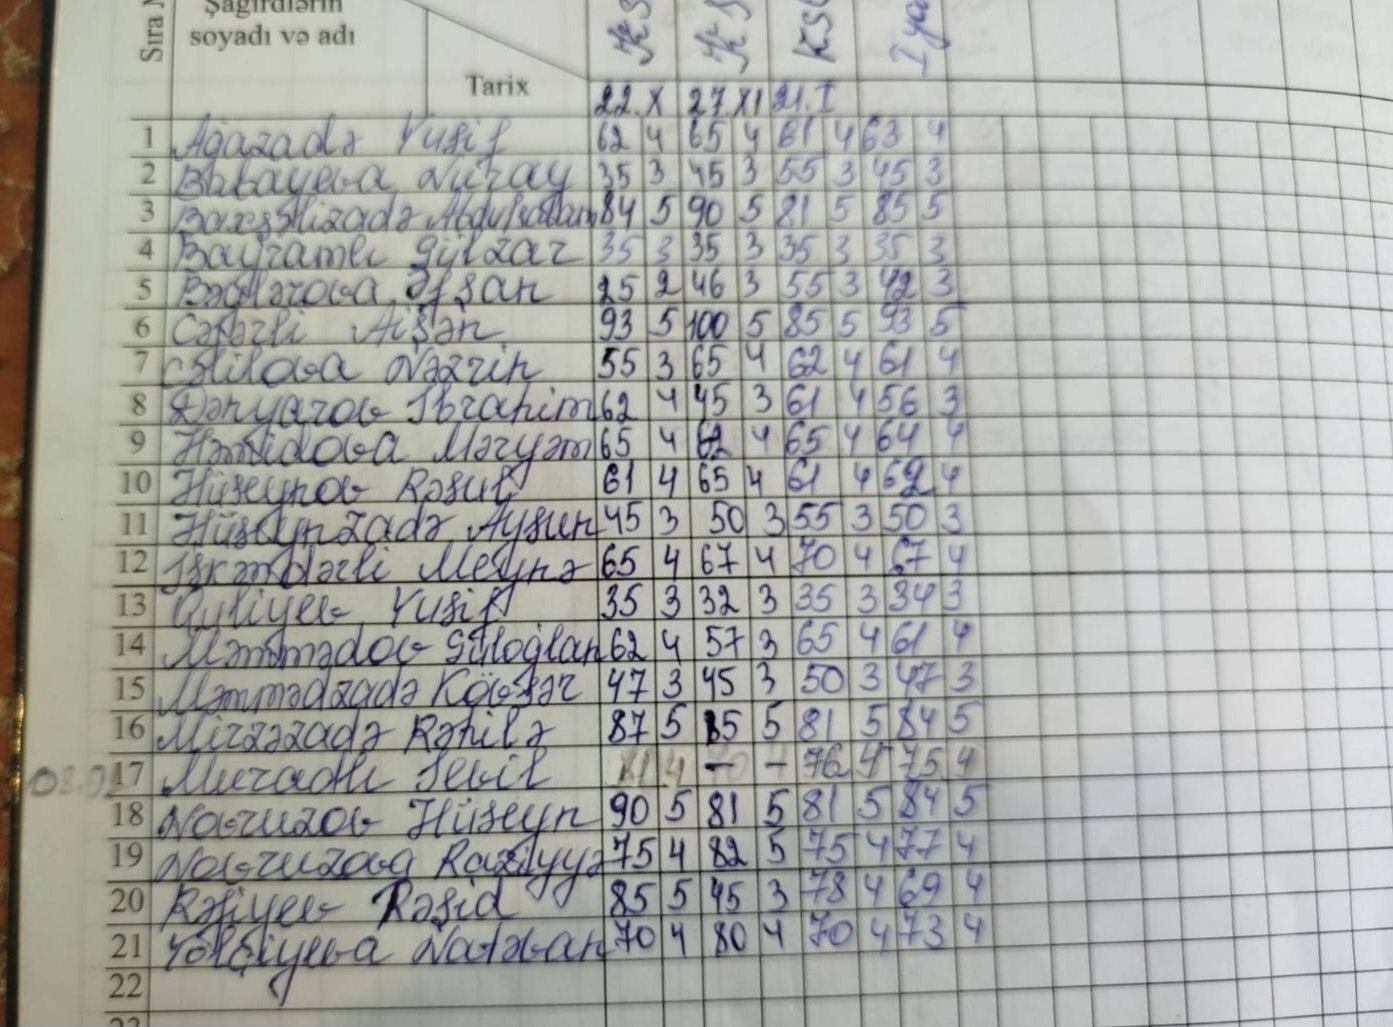 Sıra
Şagirdlərin
soyadı və adı
Tarix
KS KS KSQ I ya
22.X 27.XI 21.I
1 Ağazadə Yusif 62 4 65 4 61 4 63 4
2 Babayeva Nuray 35 3 45 3 55 3 45 3
3 84 5 90 5 81 5 85 5
4 Bayramlı Gülzar 35 3 35 3 35 3 35 3
5 Bağlarova Əfşan 25 2 46 3 55 3 42 3
6 Cəfərli Aişən 93 5 100 5 85 5 93 5
7 Cəlilova Nəzrin 55 3 65 4 62 4 61 4
8 Dənyarov İbrahim 62 4 45 3 61 4 56 3
9 Həmidova Məryəm 65 4 62 4 65 4 64 4
10 Hüseynov Rəsul 61 4 65 4 61 4 62 4
11 Hüseynzadə Aysun 45 3 50 3 55 3 50 3
12 İskəndərli Meynə 65 4 67 4 70 4 67 4
13 Quliyev Yusif 35 3 32 3 35 3 34 3
14 Məmmədov Güloğlan 62 4 57 3 65 4 61 4
15 Məmmədzadə Kövsər 47 3 45 3 50 3 47 3
16 Mirzəzadə Rəhilə 87 5 85 5 81 5 84 5
17 Muradlı Sevil 4 - - 76 4 75 4
18 Novruzov Hüseyn 90 5 81 5 81 5 84 5
19 Novruzova Raziyyə 75 4 82 5 75 4 77 4
20 Rəfiyev Rəşid 85 5 45 3 78 4 69 4
21 Yolçiyeva Natəvan 70 4 80 4 70 4 73 4
22
23